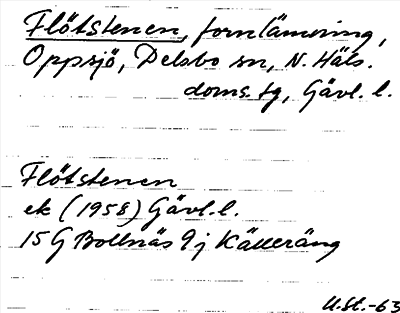 Flötstenen, fornlämning,
Oppsjö, Delsbo sn, N. Häls.
doms.sg, Gävl. l.
Flötstenen
ek (1958) Gävl. l.
15 G Bollnäs 9 j Källeräng
U.St.-63